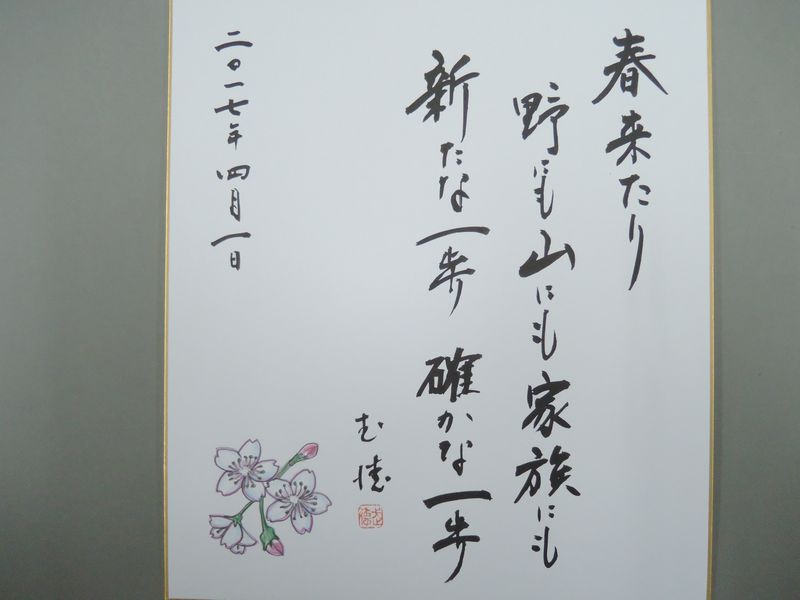 春来たり
野にも山にも家族にも
新たな一歩 確かな一歩
二〇一七年四月一日